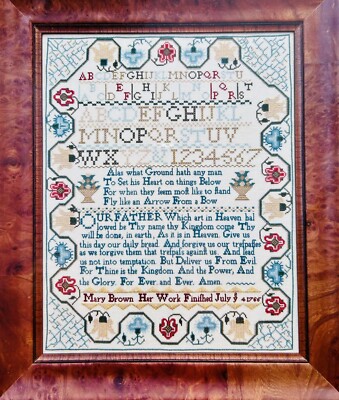 AB DEFGHIJKLMNOPQRSTU
ABCDEFGHIJKL
MNOPQRSTUV
WXYZ&1234567
Alas what Ground hath any man
To Set his Heart on things Below
For when they seem moſt like to ſtand
Fly like an Arrow From a Bow
OUR FATHER Which art in Heaven hal
lowed be Thy name thy Kingdom come Thy
will be done, in earth, As it is in Heaven. Give us
this day our daily bread. And forgive us our treſpaſſes
as we forgive them that treſpaſs againſt us. And lead
us not into temptation. But Deliver us From Evil
For Thine is the Kingdom. And the Power, And
the Glory, For Ever, and Ever, Amen
Mary Brown Her Work Finiſhed July